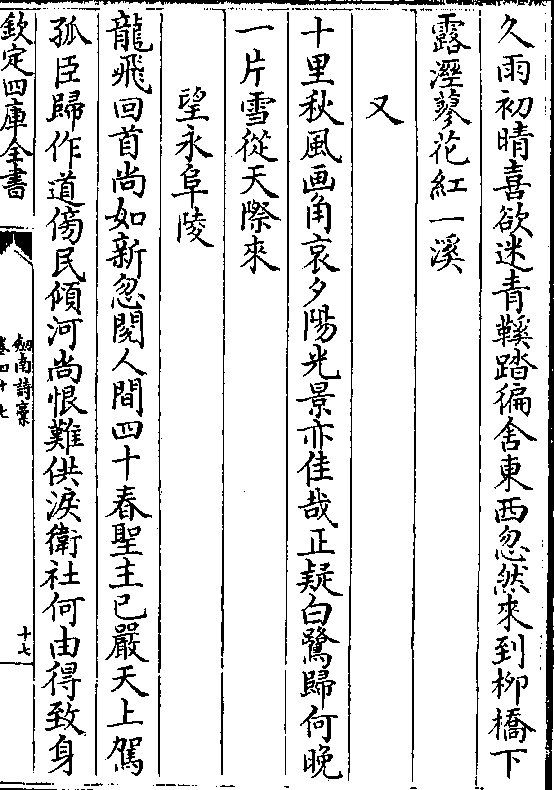 久雨初晴喜欲迷青鞵踏徧舍東西忽然來到栁橋下
露溼蓼花紅一溪
又
十里秋風画角哀夕陽光景亦佳哉正疑白鷺歸何晚
一片雪從天際來
望永阜陵
龍飛回首尚如新忽閱人間四十春聖主已嚴天上駕
孤臣歸作道傍民傾河尚恨難供淚衛社何由得致身
欽定四庫全書
劍南詩稾
卷四十七
十七